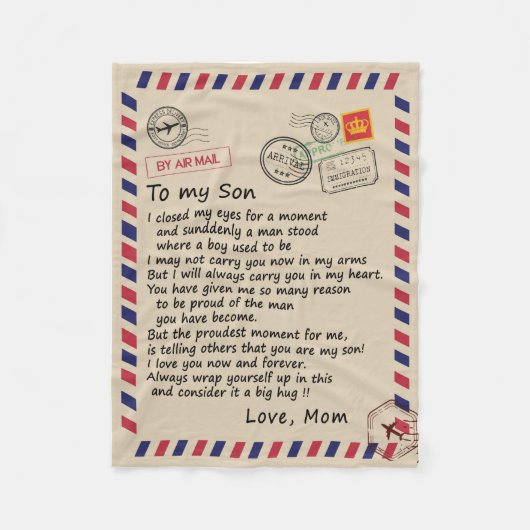 BY AIR MAIL
ARRIVAL
12345
IMMIGRATION
To my Son
I closed my eyes for a moment
and sunddenly a man stood
where a boy used to be
I may not carry you now in my arms
But I will always carry you in my heart.
You have given me so many reason
to be proud of the man
you have become.
But the proudest moment for me,
is telling others that you are my son!
I love you now and forever.
Always wrap yourself up in this
and consider it a big hug !!
Love, Mom